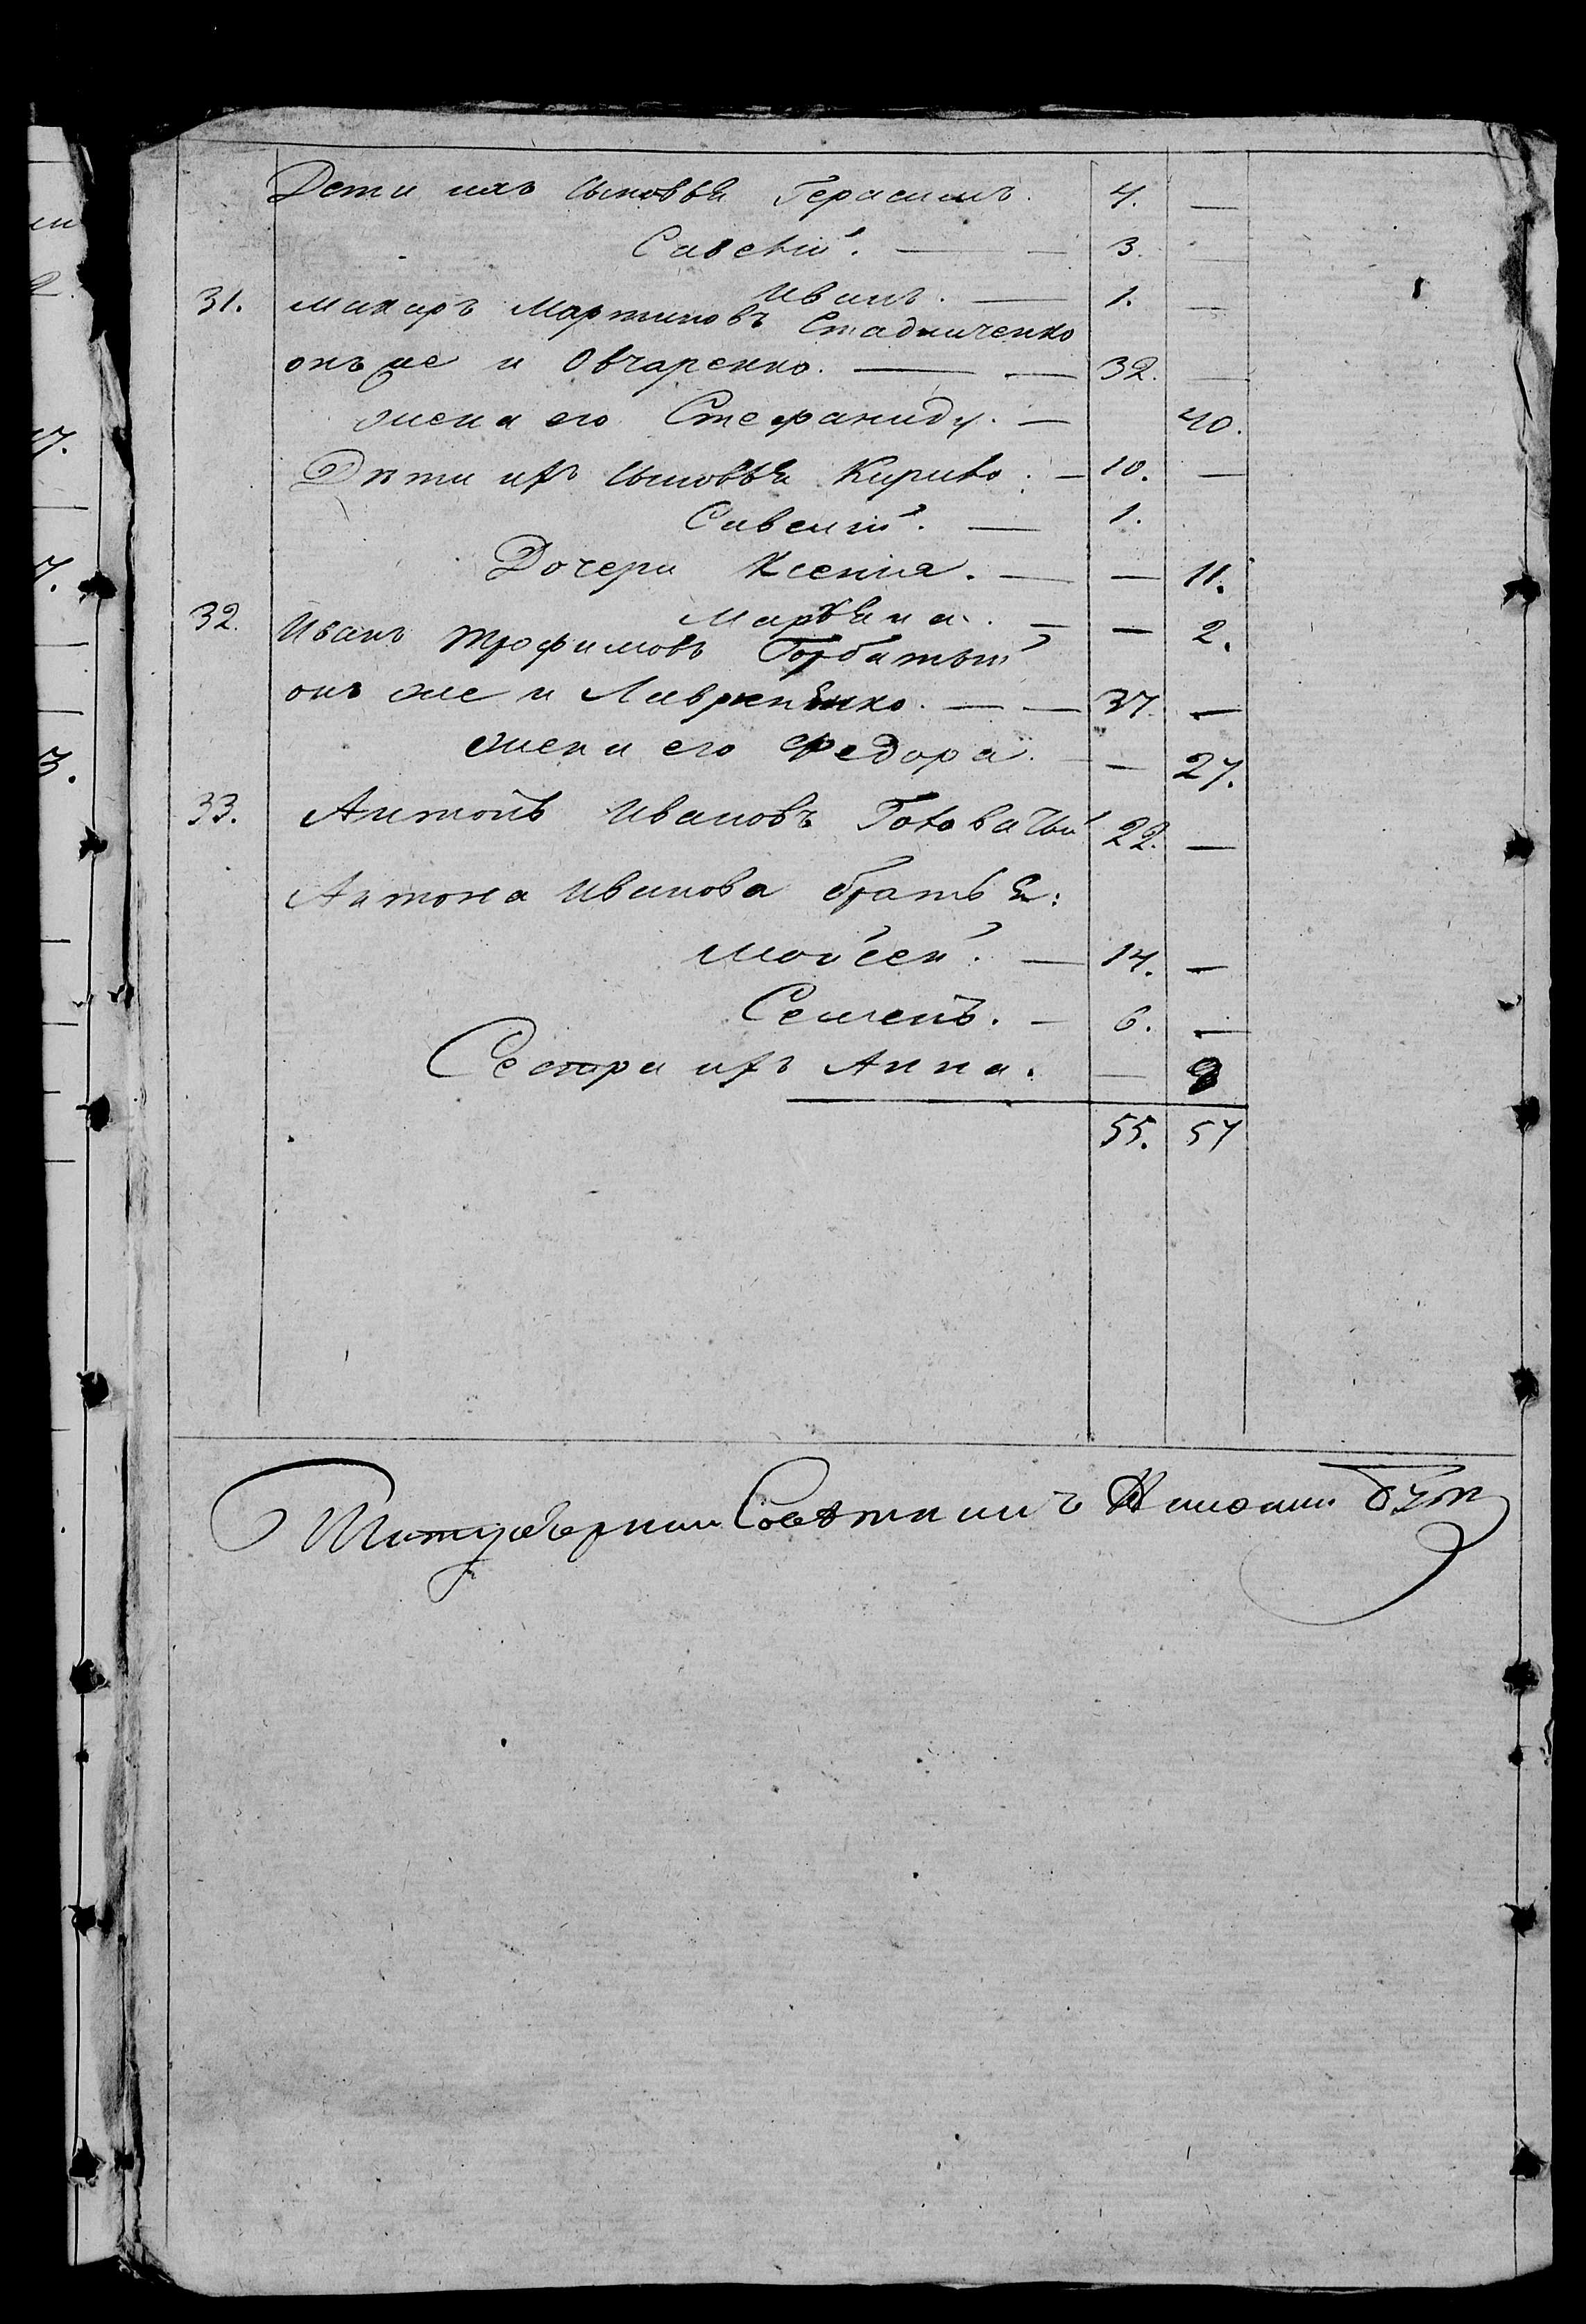 Дети ихъ сыновья Герасимъ. 4. —
Савелій. — — 3. —
Иванъ. — 1. —
31. Макаръ Мартиновъ Стадниченко
онъ же и Овчаренко. — — 32. —
жена его Стефанида. — 40.
Дѣти ихъ сыновья Кирило. — 10. —
Савелій. — 1.
Дочери Ксенія. — — 11.
Марьяна. — — 2.
32. Иванъ Трофимовъ Горбатый
онъ же и Лавриненко. — — 37. —
жена его Федора. — — 27.
33. Антонъ Ивановъ Головачъ 22. —
Антона Иванова братья:
Мойсей. — 14. —
Семенъ. — 6. —
Сестра ихъ Анна. —
55. 57
Титулярный Советникъ
17.
7.
3.